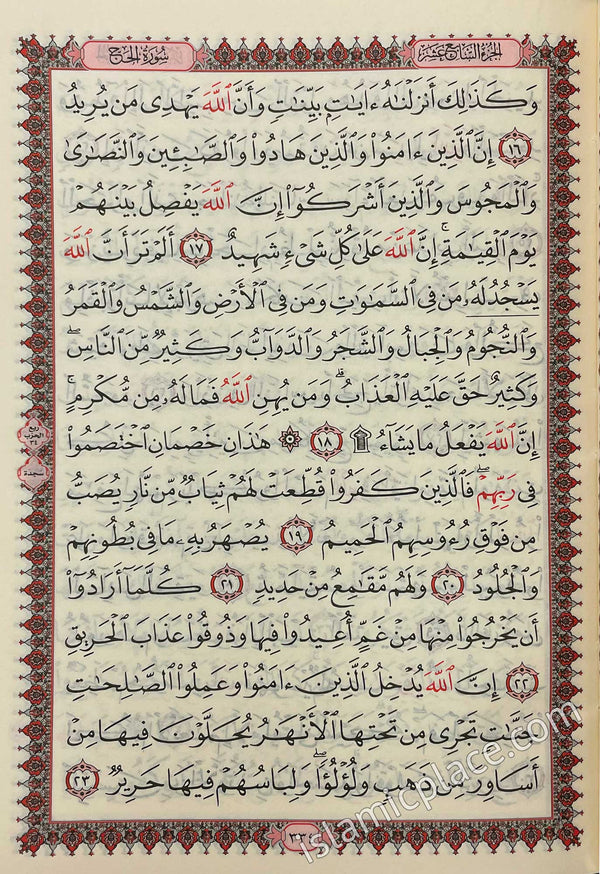 الجزء السابع عشر
سورة الحج
وَكَذَٰلِكَ أَنزَلْنَٰهُ ءَايَٰتٍۭ بَيِّنَٰتٍ وَأَنَّ ٱللَّهَ يَهْدِى مَن يُرِيدُ
١٦ إِنَّ ٱلَّذِينَ ءَامَنُوا۟ وَٱلَّذِينَ هَادُوا۟ وَٱلصَّٰبِـِٔينَ وَٱلنَّصَٰرَىٰ
وَٱلْمَجُوسَ وَٱلَّذِينَ أَشْرَكُوٓا۟ إِنَّ ٱللَّهَ يَفْصِلُ بَيْنَهُمْ
يَوْمَ ٱلْقِيَٰمَةِ ۚ إِنَّ ٱللَّهَ عَلَىٰ كُلِّ شَىْءٍ شَهِيدٌ ١٧ أَلَمْ تَرَ أَنَّ ٱللَّهَ
يَسْجُدُ لَهُۥ مَن فِى ٱلسَّمَٰوَٰتِ وَمَن فِى ٱلْأَرْضِ وَٱلشَّمْسُ وَٱلْقَمَرُ
وَٱلنُّجُومُ وَٱلْجِبَالُ وَٱلشَّجَرُ وَٱلدَّوَآبُّ وَكَثِيرٌ مِّنَ ٱلنَّاسِ ۖ
وَكَثِيرٌ حَقَّ عَلَيْهِ ٱلْعَذَابُ ۗ وَمَن يُهِنِ ٱللَّهُ فَمَا لَهُۥ مِن مُّكْرِمٍ ۚ
إِنَّ ٱللَّهَ يَفْعَلُ مَا يَشَآءُ ۩ ١٨ ۞ هَٰذَانِ خَصْمَانِ ٱخْتَصَمُوا۟
فِى رَبِّهِمْ ۖ فَٱلَّذِينَ كَفَرُوا۟ قُطِّعَتْ لَهُمْ ثِيَابٌ مِّن نَّارٍ يُصَبُّ
مِن فَوْقِ رُءُوسِهِمُ ٱلْحَمِيمُ ١٩ يُصْهَرُ بِهِۦ مَا فِى بُطُونِهِمْ
وَٱلْجُلُودُ ٢٠ وَلَهُم مَّقَٰمِعُ مِنْ حَدِيدٍ ٢١ كُلَّمَآ أَرَادُوٓا۟
أَن يَخْرُجُوا۟ مِنْهَا مِنْ غَمٍّ أُعِيدُوا۟ فِيهَا وَذُوقُوا۟ عَذَابَ ٱلْحَرِيقِ
٢٢ إِنَّ ٱللَّهَ يُدْخِلُ ٱلَّذِينَ ءَامَنُوا۟ وَعَمِلُوا۟ ٱلصَّٰلِحَٰتِ
جَنَّٰتٍ تَجْرِى مِن تَحْتِهَا ٱلْأَنْهَٰرُ يُحَلَّوْنَ فِيهَا مِنْ
أَسَاوِرَ مِن ذَهَبٍ وَلُؤْلُؤًا ۖ وَلِبَاسُهُمْ فِيهَا حَرِيرٌ ٢٣
ربع
الحزب
٣٤
سجدة
Islamicplace.com